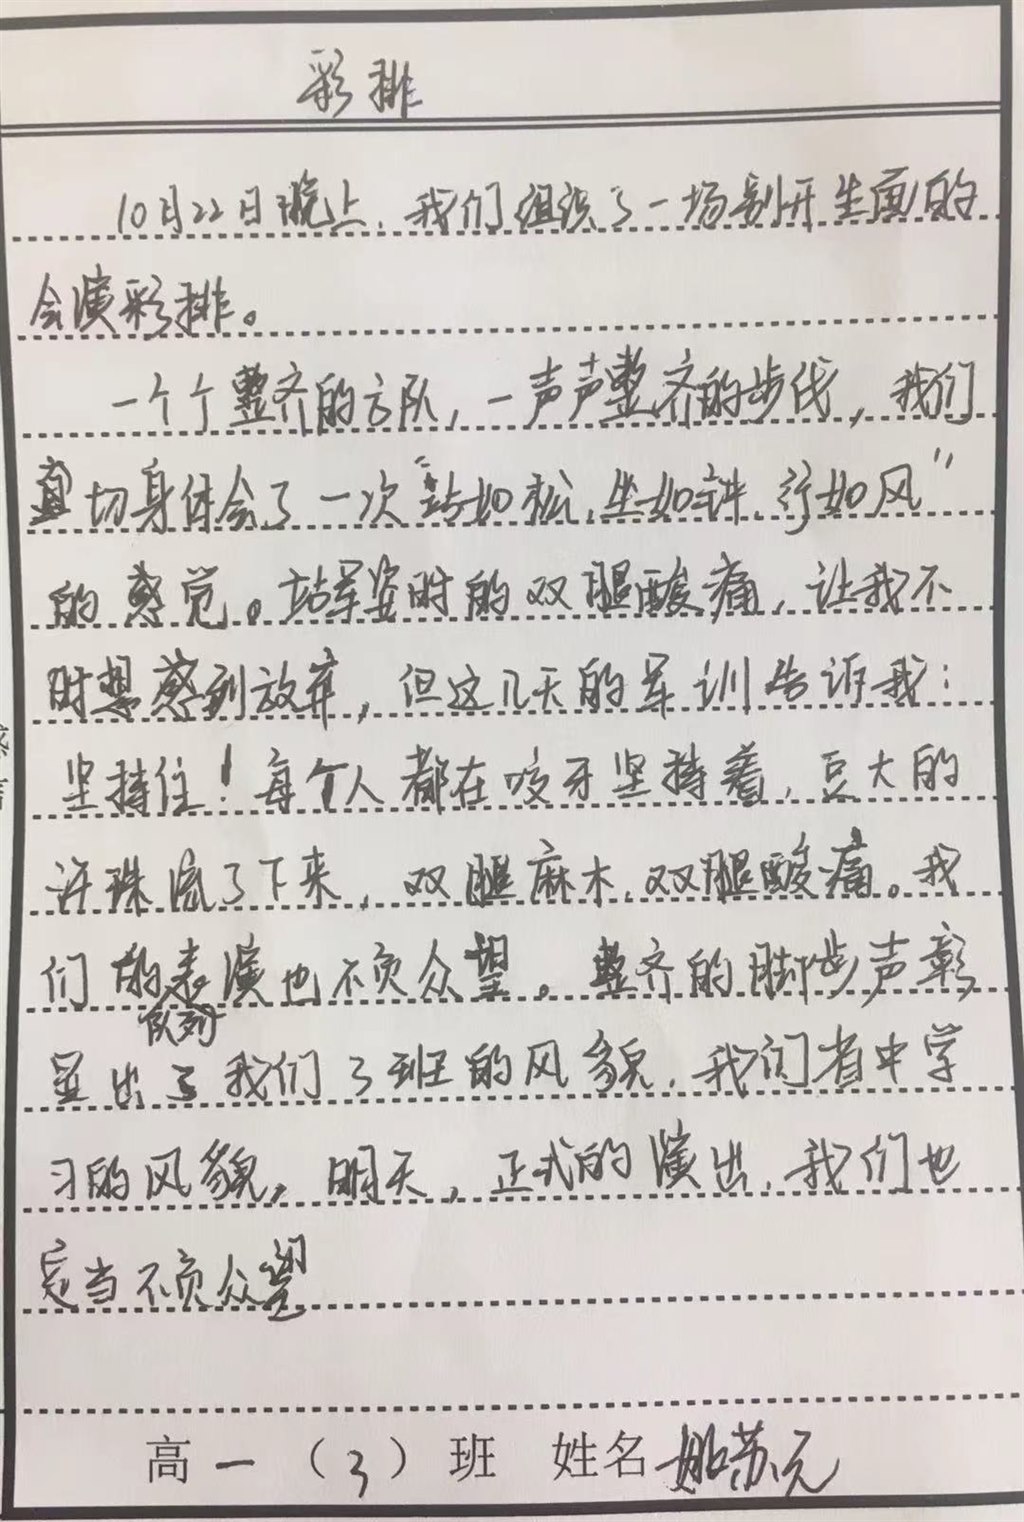 彩排
10月22日晚上,我们组织了一场别开生面的
会演彩排。
一个个整齐的方队,一声声整齐的步伐,我们
真切身体会了一次“站如松,坐如钟,行如风”
的感觉。站军姿时的双腿酸痛,让我不
时想到放弃,但这几天的军训告诉我:
坚持住!每个人都在咬牙坚持着,豆大的
汗珠流了下来,双腿麻木,双腿酸痛。我
们的表演也不负众望。整齐的脚步声彰
队列
显出了我们3班的风貌,我们省中学
习的风貌,明天,正式的演出,我们也
定当不负众望
高一(3)班 姓名 苏元